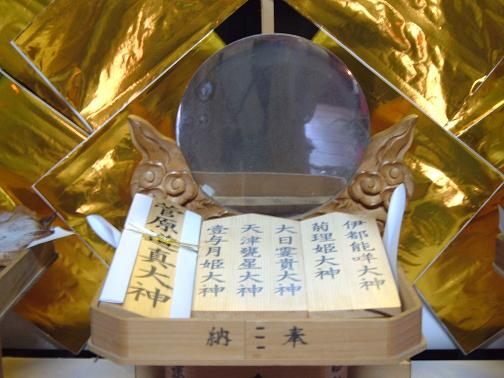 伊都能咩大神
菊理姫大神
大日霎貴大神
天津甕星大神
壹与月姫大神
菅原道真大神
奉納